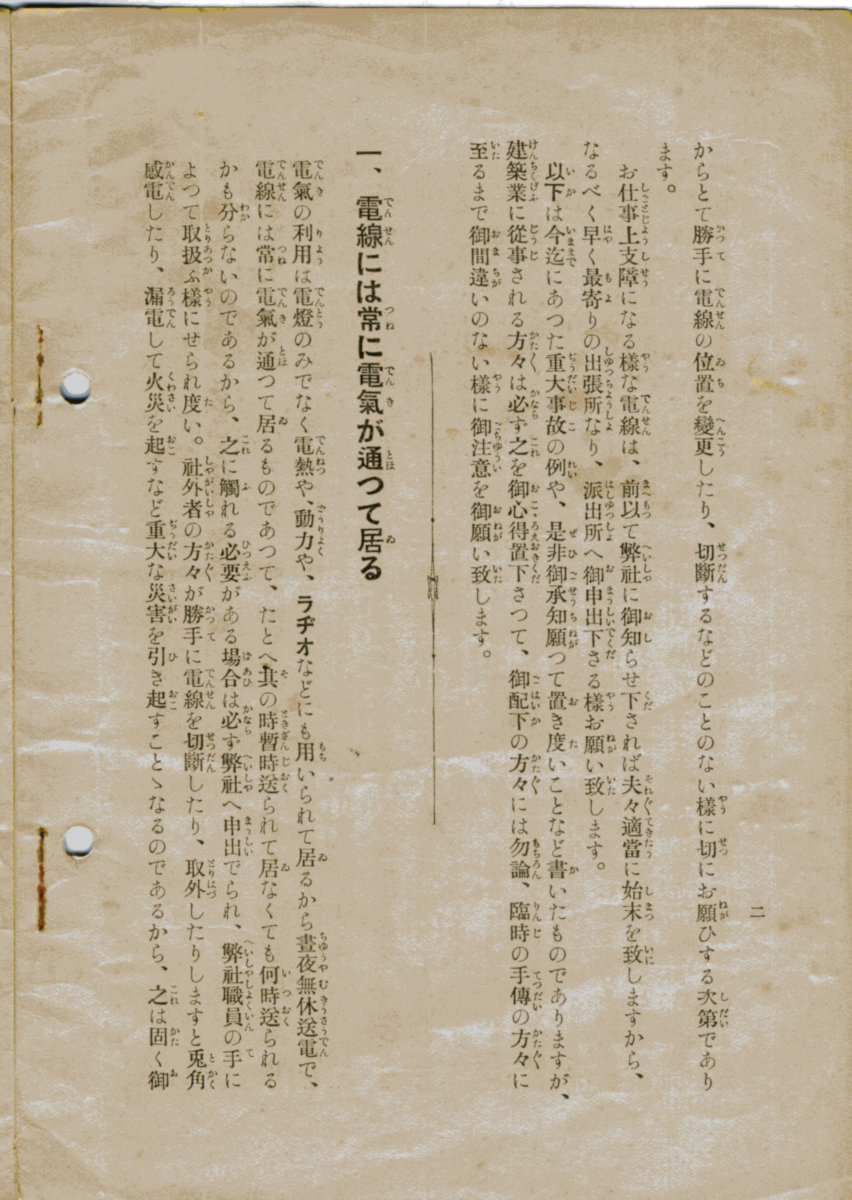 二
からとて勝手に電線の位置を變更したり、切斷するなどのことのない樣に切にお願ひする次第であり
ます。
お仕事上支障になる樣な電線は、前以て弊社に御知らせ下されば夫々適當に始末を致しますから、
なるべく早く最寄りの出張所なり、派出所へ御申出下さる樣お願い致します。
以下は今迄にあつた重大事故の例や、是非御承知願つて置き度いことなど書いたものでありますが、
建築業に從事される方々は必ず之を御心得置下さつて、御配下の方々には勿論、臨時の手傳の方々に
至るまで御間違いのない樣に御注意を御願い致します。
一、電線には常に電氣が通つて居る
電氣の利用は電燈のみでなく電熱や、動力や、ラヂオなどにも用いられて居るから晝夜無休送電で、
電線には常に電氣が通つて居るものであつて、たとへ其の時暫時送られて居なくても何時送られる
かも分らないのであるから、之に觸れる必要がある場合は必ず弊社へ申出でられ、弊社職員の手に
よつて取扱ふ樣にせられ度い。社外者の方々が勝手に電線を切斷したり、取外したりしますと兎角
感電したり、漏電して火災を起すなど重大な災害を引き起すことゝなるのであるから、之は固く御